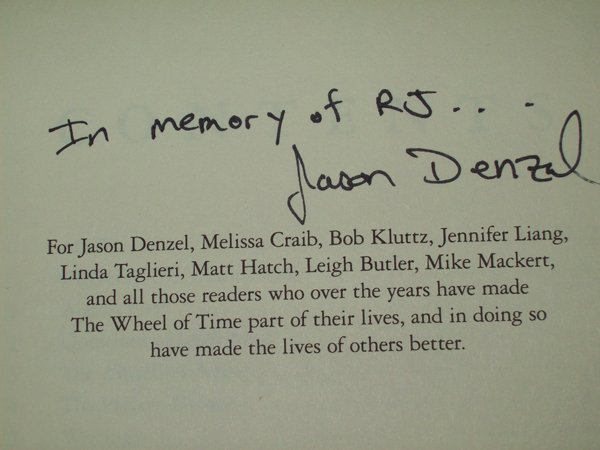 In memory of RJ...
Jason Denzel
For Jason Denzel, Melissa Craib, Bob Kluttz, Jennifer Liang,
Linda Taglieri, Matt Hatch, Leigh Butler, Mike Mackert,
and all those readers who over the years have made
The Wheel of Time part of their lives, and in doing so
have made the lives of others better.